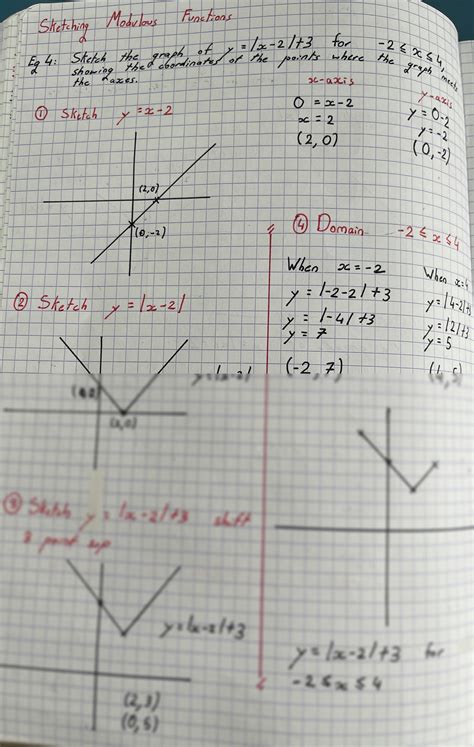 Sketching Modulous Functions
Eg 4: Sketch the graph of y = |x-2|+3 for -2 ≤ x ≤ 4,
showing the coordinates of the points where the graph meets
the axes.
① Sketch y = x-2
(2,0)
(0,-2)
x-axis
0 = x-2
x = 2
(2,0)
y-axis
y = 0-2
y = -2
(0,-2)
② Sketch y = |x-2|
y = |x-2|
(2,0)
③ Sketch y = |x-2|+3 shift
3 point up
y = |x-2|+3
(2,3)
(0,5)
④ Domain -2 ≤ x ≤ 4
When x = -2
y = |-2-2|+3
y = |-4|+3
y = 7
(-2,7)
When x=4
y = |4-2|+3
y = |2|+3
y = 5
(4,5)
y = |x-2|+3 for
-2 ≤ x ≤ 4